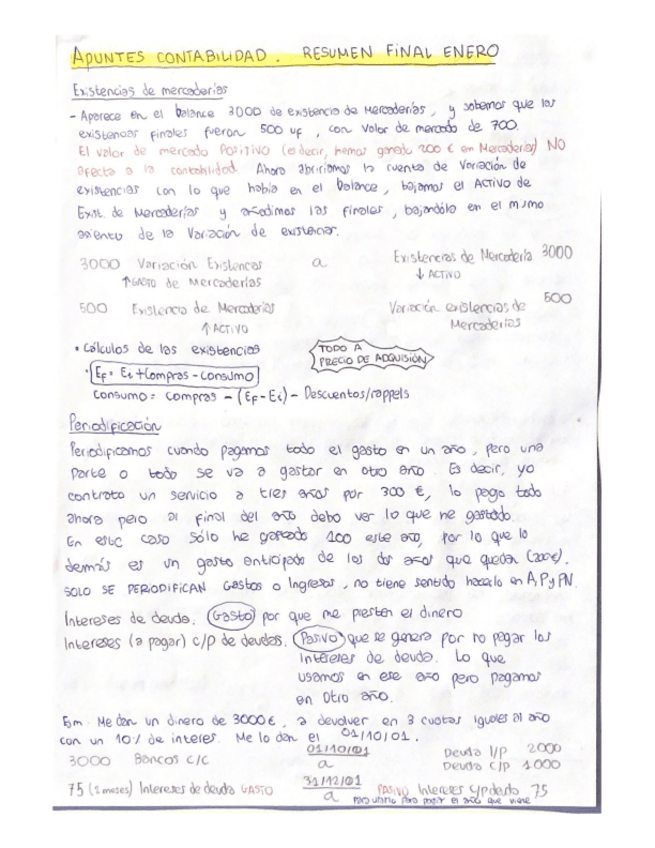 APUNTES CONTABILIDAD. RESUMEN FINAL ENERO
Existencias de mercaderías
- Aparece en el balance 3000 de existencia de Mercaderías, y sabemos que las
existencias finales fueron 500 uf, con valor de mercado de 700.
El valor de mercado POSITIVO (es decir, hemos ganado 200 € en Mercaderías) NO
afecta a la contabilidad. Ahora abriríamos la cuenta de Variación de
existencias con lo que había en el balance, bajamos el ACTIVO de
Exist. de Mercaderías y añadimos las finales, bajándola en el mismo
asiento de la Variación de existencias.
3000 Variación Existencias a Existencias de Mercadería 3000
↑GASTO de Mercaderías ↓ ACTIVO
500 Existencia de Mercaderías Variación existencias de 500
↑ ACTIVO Mercaderías
• Cálculos de las existencias TODO A
PRECIO DE ADQUISIÓN
• Ef = Ei + Compras - Consumo
Consumo = Compras - (Ef - Ei) - Descuentos/rappels
Periodificación
Periodificamos cuando pagamos todo el gasto en un año, pero una
parte o todo se va a gastar en otro año. Es decir, yo
contrato un servicio a tres años por 300 €, lo pago todo
ahora pero al final del año debo ver lo que he gastado.
En este caso sólo he gastado 100 este año, por lo que lo
demás es un gasto anticipado de los dos años que quedan (200€).
SOLO SE PERIODIFICAN Gastos o Ingresos, no tiene sentido hacerlo en A, P y PN.
Intereses de deuda. (Gasto) por que me presten el dinero
Intereses (a pagar) c/p de deudas. (Pasivo) que se genera por no pagar los
intereses de deuda. Lo que
usamos en ese año pero pagamos
en otro año.
Ejm. Me dan un dinero de 3000€, a devolver en 3 cuotas iguales al año
con un 10% de interés. Me lo dan el 01/10/01.
3000 Bancos C/C 01/10/01 a Deuda l/p 2000
Deuda c/p 1000
75 (3 meses) Intereses de deuda GASTO 31/12/01 a PASIVO Intereses c/p deuda 75
para pagar el año que viene